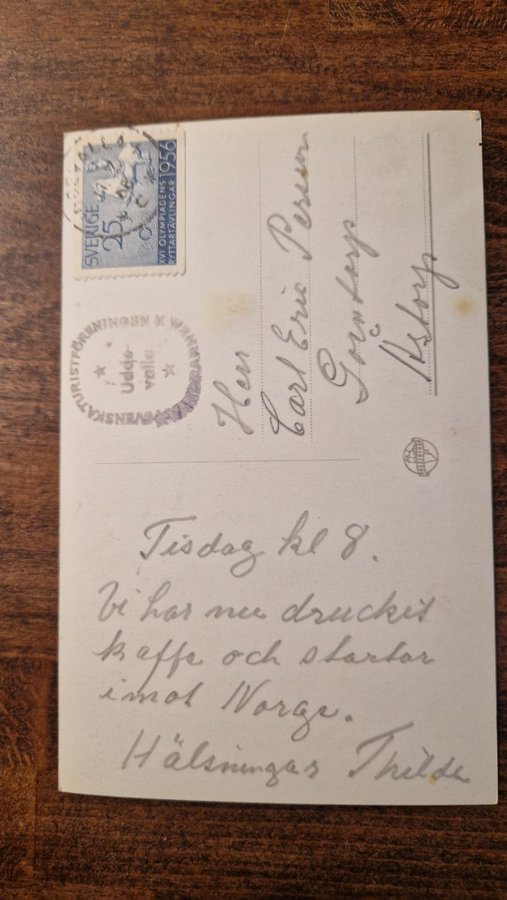 SVERIGE
25
XVI OLYMPIADENS
RYTTARTÄVLINGAR 1956
SVENSKA TURISTFÖRENINGEN
Udde-
valla
Herr
Carl Eric Persson
Åstorp
Tisdag kl 8.
Vi har nu druckit
kaffe och startar
imot Norge.
Hälsningar Thilda